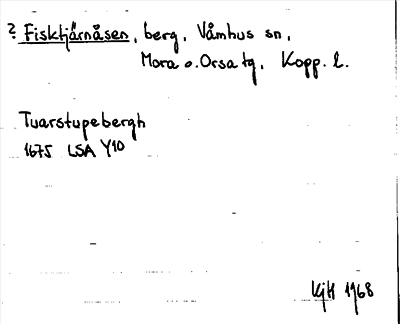 ? Fisktjärnåsen, berg, Våmhus sn,
Mora o. Orsa tg, Kopp. l.
Tuarstupebergh
1675 LSA Y10
KjH 1968